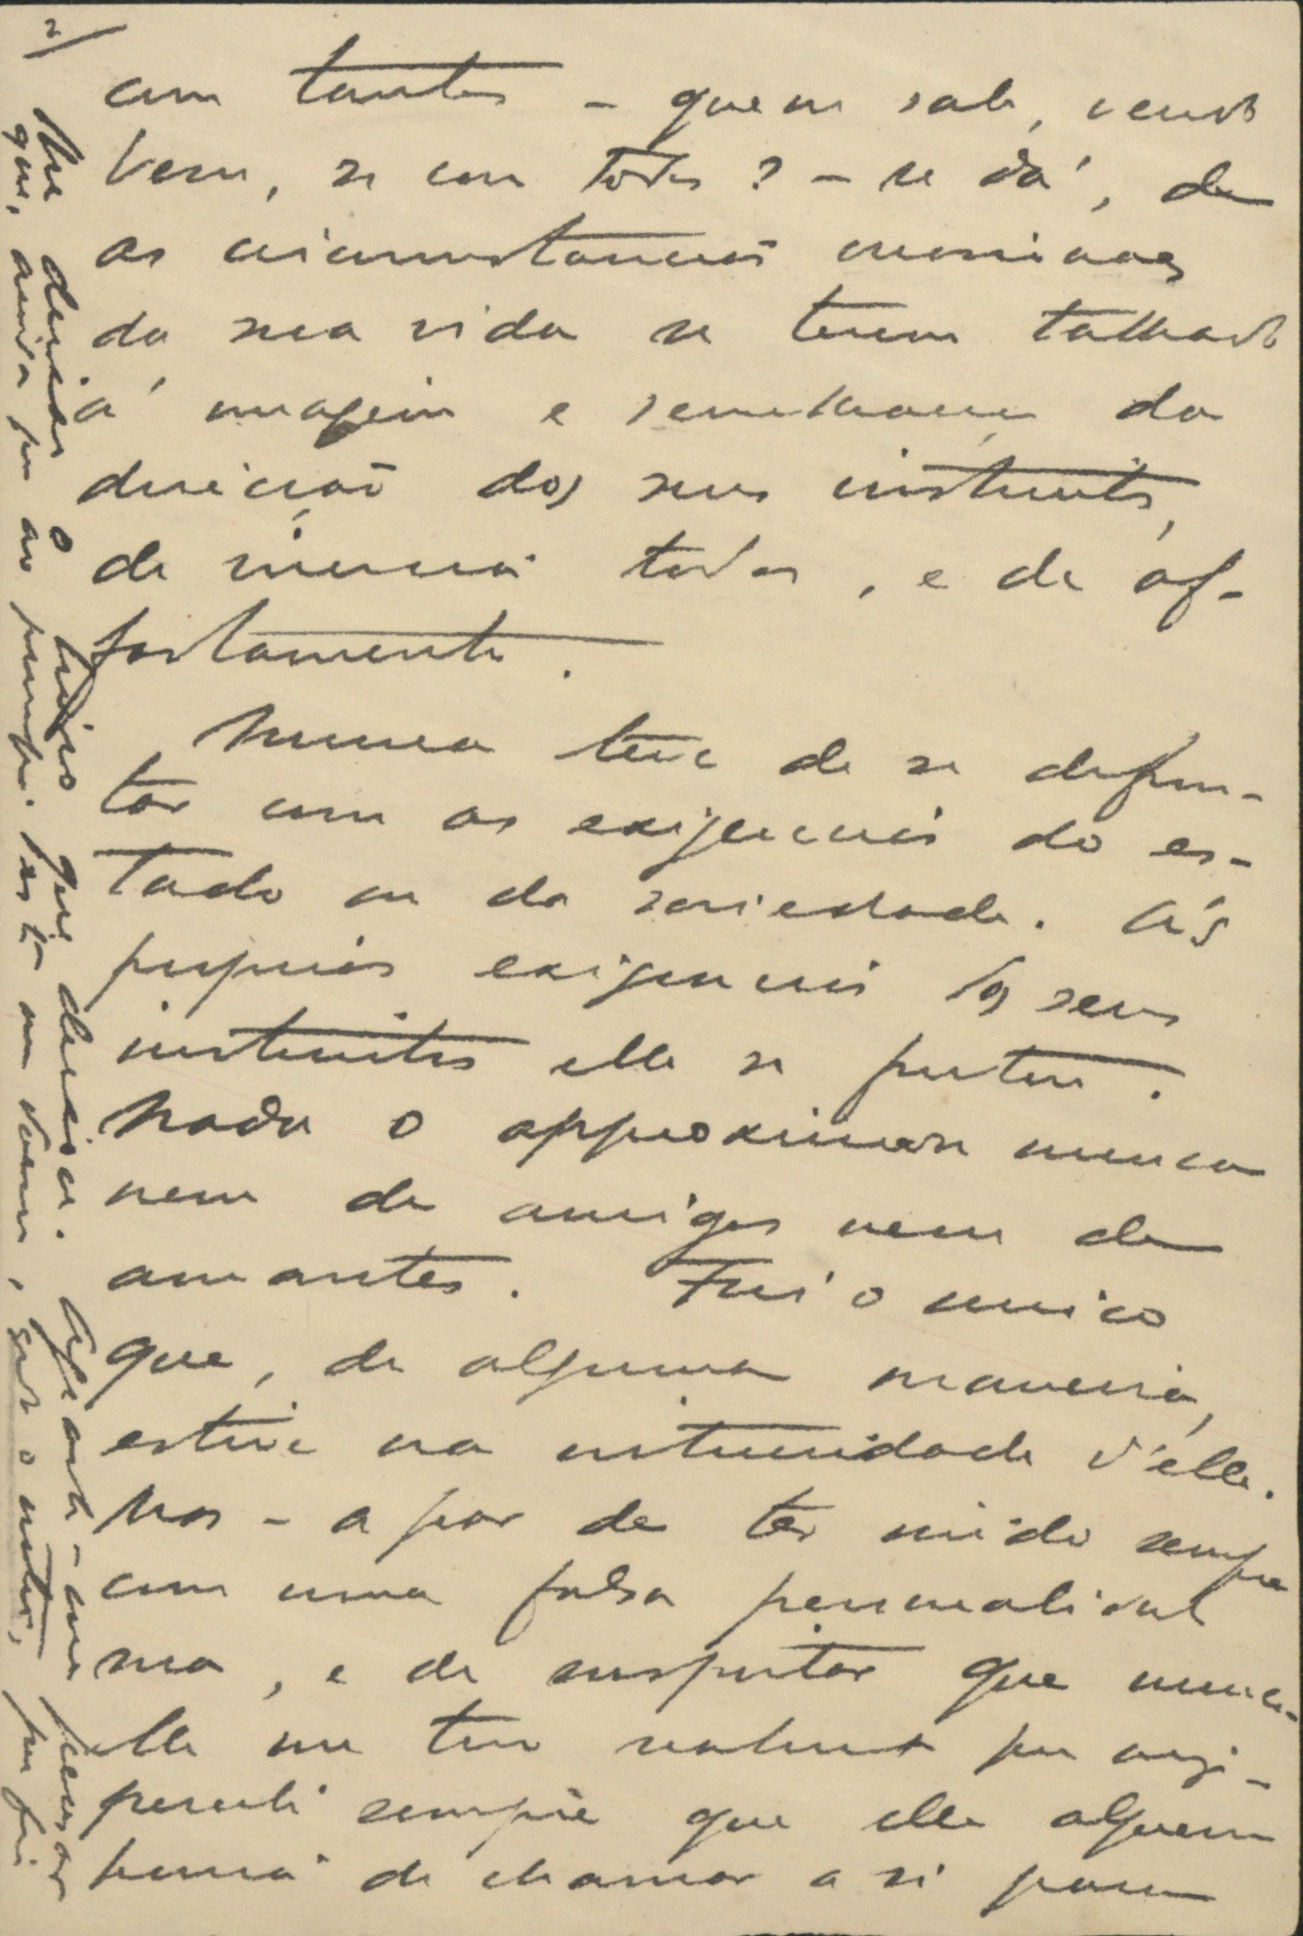 2/
com tantos – quem sabe, vendo
bem, se com todos? – se dá, de
as circumstancias occasionaes
da sua vida se terem talhado
á imagem e semelhança da
direcção dos seus instinctos,
de inercia todos, e de af-
fastamento.
Nunca teve de se defron-
tar com as exigencias do es-
tado ou da sociedade. Ás
proprias exigencias dos seus
instinctos elle se furtou.
Nada o approximou nunca
nem de amigos nem de
amantes. Fui o unico
que, de alguma maneira,
estive na intimidade d'elle.
Mas – a par de ter vivido sempre
com uma falsa personalidade
sua, e de suspeitar que nunca
elle me teve realmente por amigo –
percebi sempre que elle alguem
havia de chamar a si para
lhe deixar o livro que deixou. Agrada-me pensar
que, ainda que ao principio isto me doesse, quando o notei, por fim